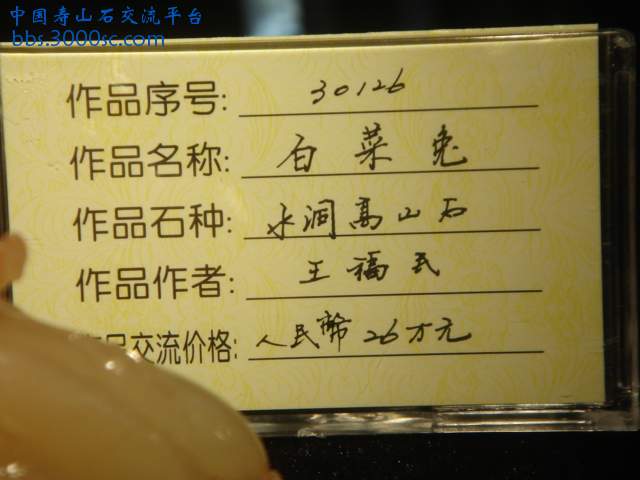 中国寿山石交流平台
bbs.3000sc.com
作品序号: 30126
作品名称: 白菜兔
作品石种: 水洞高山石
作品作者: 王福民
作品交流价格: 人民币 26万元